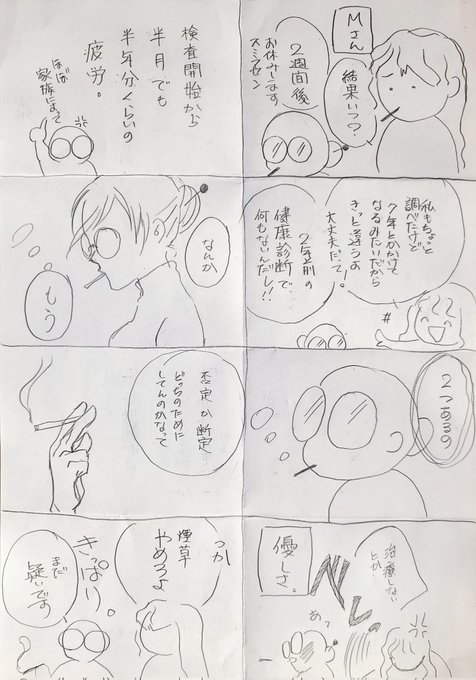 Mさん
結果いつ?
2週間後
お休みします
スミマセン
私もちょっと
調べたけど
7年とかかけて
なるみたいだから
きっと違うよ
大丈夫だって!
2年前の
健康診断で、
何もないんだし!!
#
2つあるの
治療しない
とか
優しさ。
検査開始から
半月でも
半年分くらいの
疲労。
ほぼ
家族にまで
なんか
もう
否定か断定
どっちのために
してんのかなって
つか
煙草
やめろよ
きっぱり。
まだ
疑いです